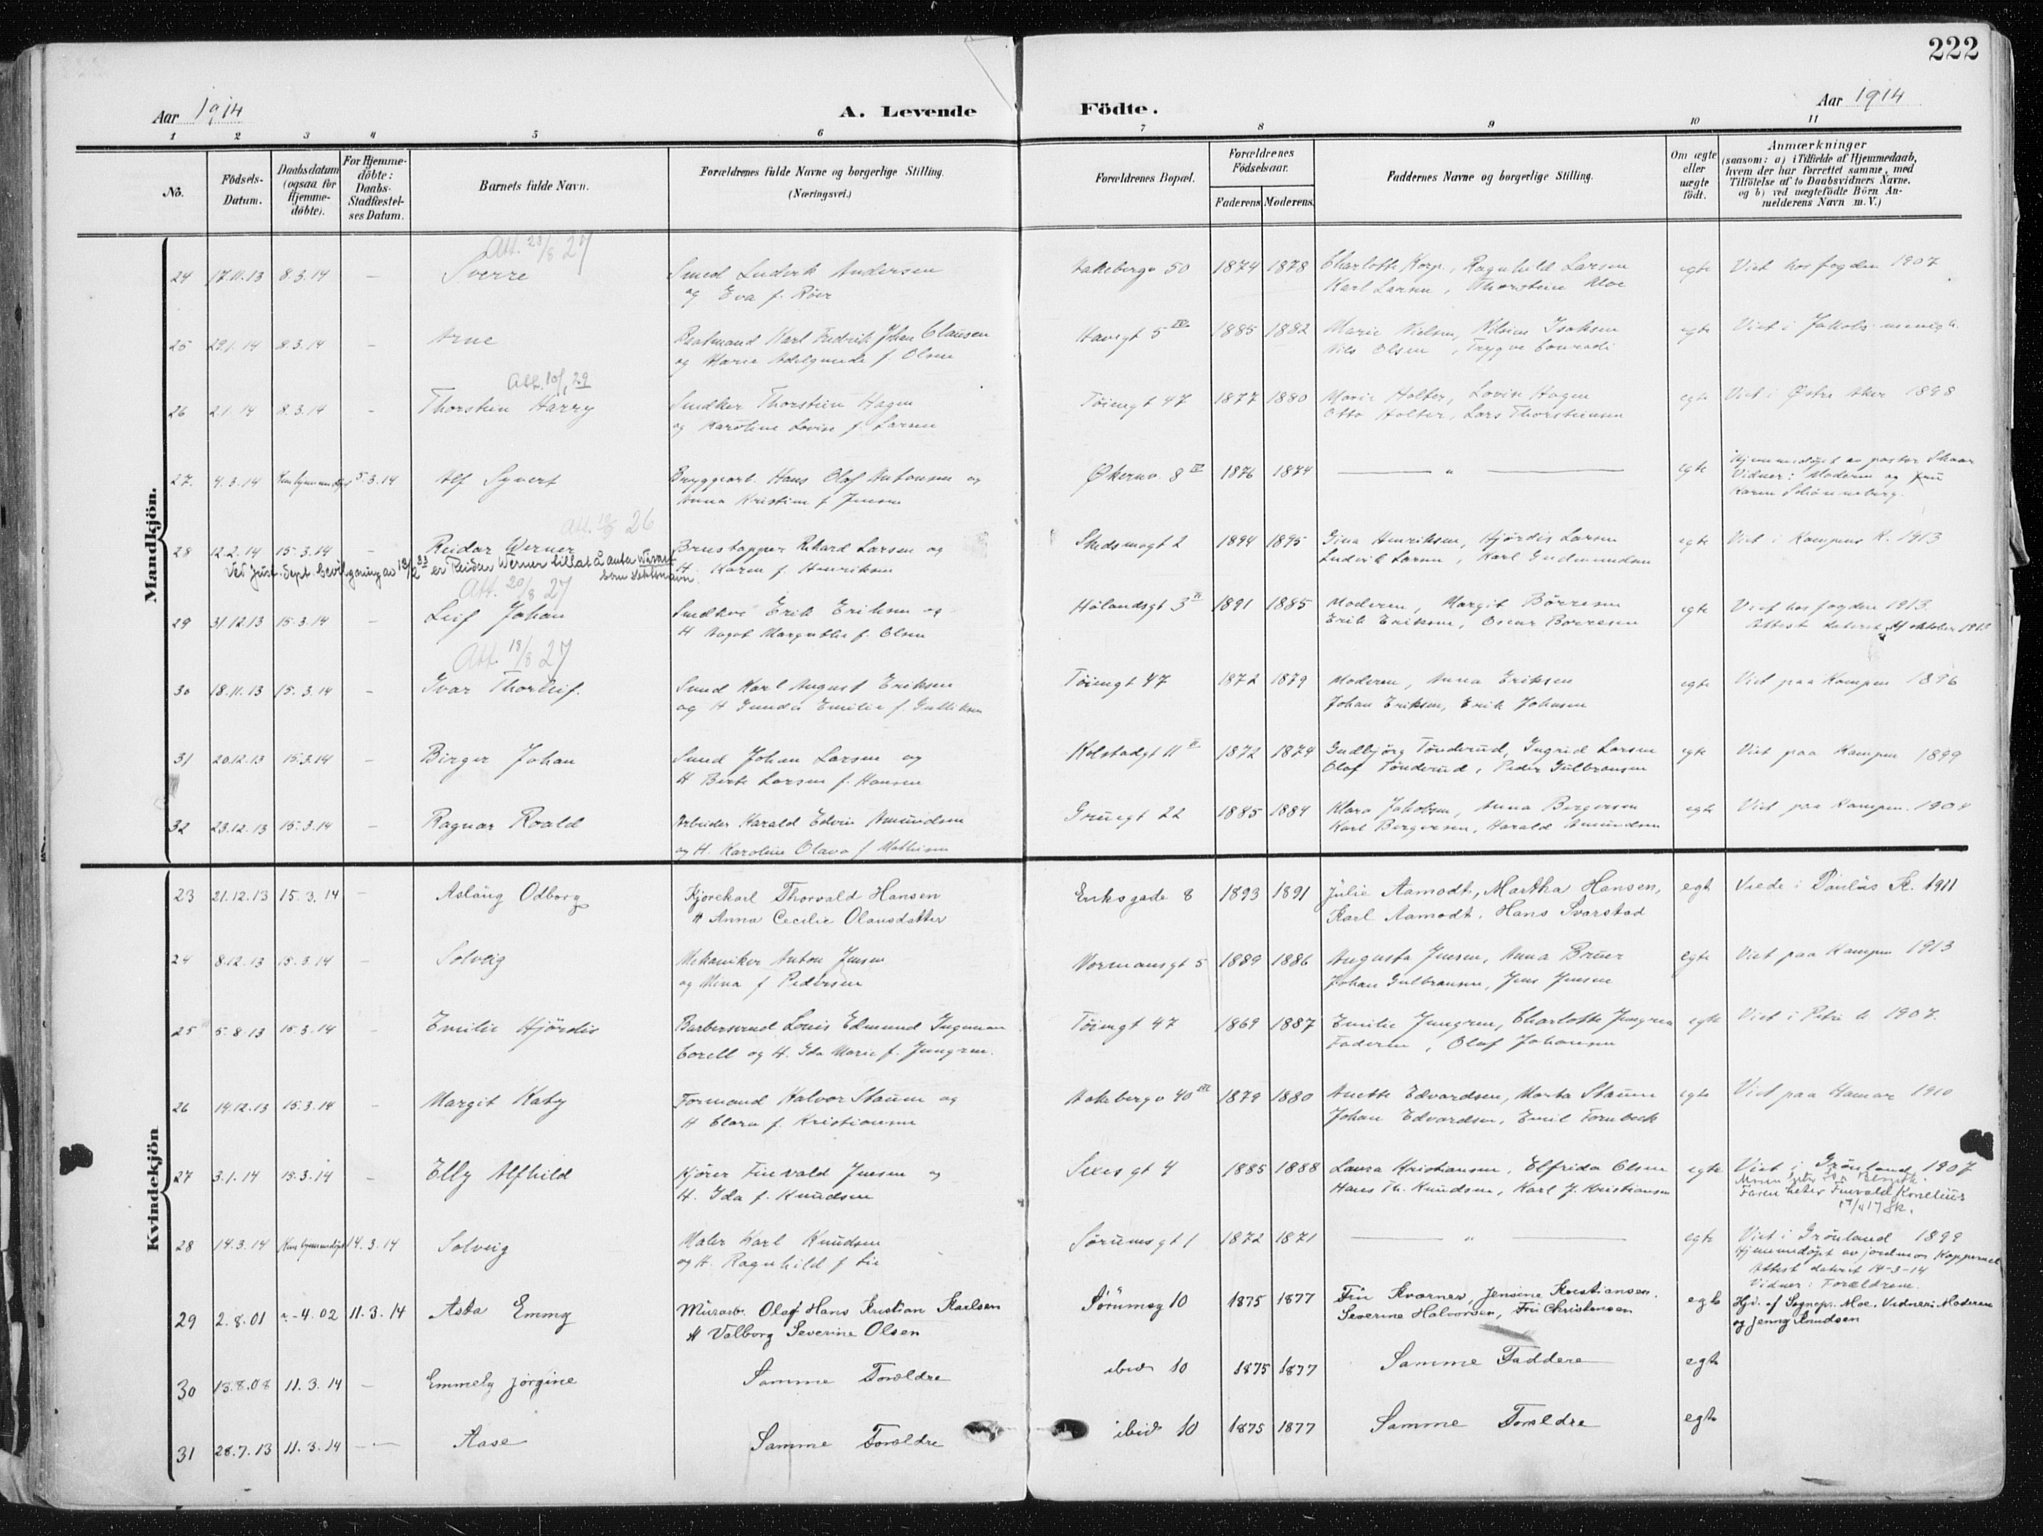 222
Aar 1914
A. Levende Födte.
Aar 1914
1 2 3 4 5 6 7 8 9 10 11
No.
Födsels-Datum.
Daabsdatum (ogsaa for Hjemme-döbte).
For Hjemme-döbte: Daabs-Stadfæstel-ses Datum.
Barnets fulde Navn.
Forældrenes fulde Navne og borgerlige Stilling.
(Næringsvei.)
Forældrenes Bopæl.
Forældrenes Födselsaar.
Faderens Moderens
Faddernes Navne og borgerlige Stilling.
Om ægte eller uægte födt.
Anmærkninger
(saasom: a) i Tilfælde af Hjemmedaab,
hvem der har forrettet samme, med
Tilföielse af to Daabsvidners Navne,
og b) ved uægtefödte Börn An-
melderens Navn m. V.)
Mandkjön.
Att. 23/8 27
24 17.11.13 8.3.14 – Sverre Smed Ludvik Andersen Aakebergv 50 1874 1878 Charlotte Korp, Ragnhild Larsen egte Viet hos fogden 1907
og Eva f. Röer Karl Larsen, Thorstein Aloe
25 29.1.14 8.3.14 – Arne Karl Fredrik Johan Clausen Havegt 5 IV 1885 1882 Marie Nielsen, Nilsine Isaksen egte Viet i Jakobs menigh.
og Marie Adelgunde f Olsen Nils Olsen, Trygve Conradi
Att. 10/1 29
26 2.1.14 8.3.14 – Thorstein Harry Snedker Thorstein Hagen Töiengt 47 1877 1880 Marie Holter, Lovise Hagen egte Viet i Østre Aker 1898
og Karoline Lovise f. Larsen Otto Holter, Lars Thorstensen
27. 4.3.14 5.3.14 Alf Syvert Bryggearb. Hans Olaf Antonsen og Økernv. 8 IV 1876 1874 — " — egte Hjemmedøpt av pastor Skaar
Anna Kristine f Jensen Vidner: Moderen og fru
Karen Schönneberg.
Att. 26
28 12.2.14 15.3.14 – Reidar Werner Brustapper Rikard Larsen og Skedsmogt 2 1894 1895 Gina Henriksen, Hjördis Larsen egte Viet i Kampens K. 1913
Ved Just. dept. bevilgning av 13/2 33 er Reidar Werner tillatt å anta Werner som slektsnavn
H. Karen f. Henriksen Ludvik Larsen, Karl Gudmundsen
Att. 20/8 27
29 31.12.13 15.3.14 – Leif Johan Snedker Erik Eriksen og Hølandsgt 3 II 1891 1885 Moderen, Margit Börresen egte Viet hos fogden 1913.
H Aagot Margrethe f Olsen Erik Eriksen, Oscar Börresen Attest dateret oktober 1913
Att. 18/8 27
30 18.11.13 15.3.14 – Ivar Thorleif. Smed Karl August Eriksen Töiengt 47 1872 1879 Moderen, Anna Eriksen egte Viet paa Kampen 1896
og H Gunda Emilie f. Gulliksen Johan Eriksen, Erik Johnsen
31 20.12.13 15.3.14 – Birger Johan Smed Johan Larsen og Kolstadgt 11 II 1872 1874 Gudbjörg Tönderud, Ingrid Larsen egte Viet paa Kampen 1899
H Berte Larsen f. Hansen Olaf Tönderud, Peder Gulbransen
32 23.12.13 15.3.14 – Ragnar Roald Arbeider Harald Edvin Amundsen Gruegt 22 1885 1884 Klara Jakobsen, Anna Bergersen egte Viet paa Kampen. 1904
og H. Karoline Olava f Mathisen Karl Bergersen, Harald Amundsen
Kvindekjön
23 21.12.13 15.3.14 – Aslaug Odborg Kjørekarl Thorvald Hansen Eriksgade 8 1893 1891 Julie Aamodt, Martha Hansen, egt Viede i Paulus K. 1911
H Anna Cecilie Olausdatter Karl Aamodt, Hans Svarstad
24 8.12.13 15.3.14 – Solveig Mekaniker Anton Jensen Normansgt 5 1889 1886 Augusta Jensen, Anna Bruer egte Viet paa Kampen 1913
og Mina f Pedersen Johan Gulbransen, Jens Jensen
25 5.8.13 15.3.14 – Emilie Hjördis Barbersvend Louis Edmund Ingeman Töiengt 47 1869 1887 Emilie Jungren, Charlotte Jungren egte Viet i Petri k 1907.
Corell og H. Ida Marie f. Jungren. Faderen, Olaf Johansen
26 14.12.13 15.3.14 – Margit Katy Formand Halvor Staum og Aakebergv 40 III 1879 1880 Anette Edvardsen, Marta Staum egte Viet paa Hamar 1910
H Clara f Kristiansen Johan Edvardsen, Emil Fornbeck
27 3.1.14 15.3.14 – Elly Alfhild Kjører Finvald Jensen og Sexesgt 4 1885 1888 Laura Kristiansen, Elfrida Olsen egte Viet i Grönland 1907
H. Ida f. Knudsen Hans Th. Knudsen, Karl J. Kristiansen
Faren heter Finvald Kornelius
28 14.3.14 14.3.14 Solveig Maler Karl Knudsen Sörumsgt 1 1872 1871 — " — egte Viet i Grönland 1899
og H. Ragnhild f Lie Hjemmedøpt av jordmor Koppernæs
Attest dateret 14-3-14
Vidner: Forældrene.
29 2.8.01 –4.02 11.3.14 Asta Emmy Murarb. Olaf Hans Kristian Karlsen Sörumsg 10 1875 1877 Fru Kværner, Jensine Kristiansen. egte Hjd. af Sognepr. Moe. Vidner: Moderen
H Valborg Severine Olsen Severine Halvorsen, Fru Christensen og Jenny Knudsen
30 15.8.08 11.3.14 – Emmely Jørgine Samme Forældre ibid 10 1875 1877 Samme Faddere egte
31 28.7.13 11.3.14 – Aase Samme Forældre ibid 10 1875 1877 Samme Forældre egte